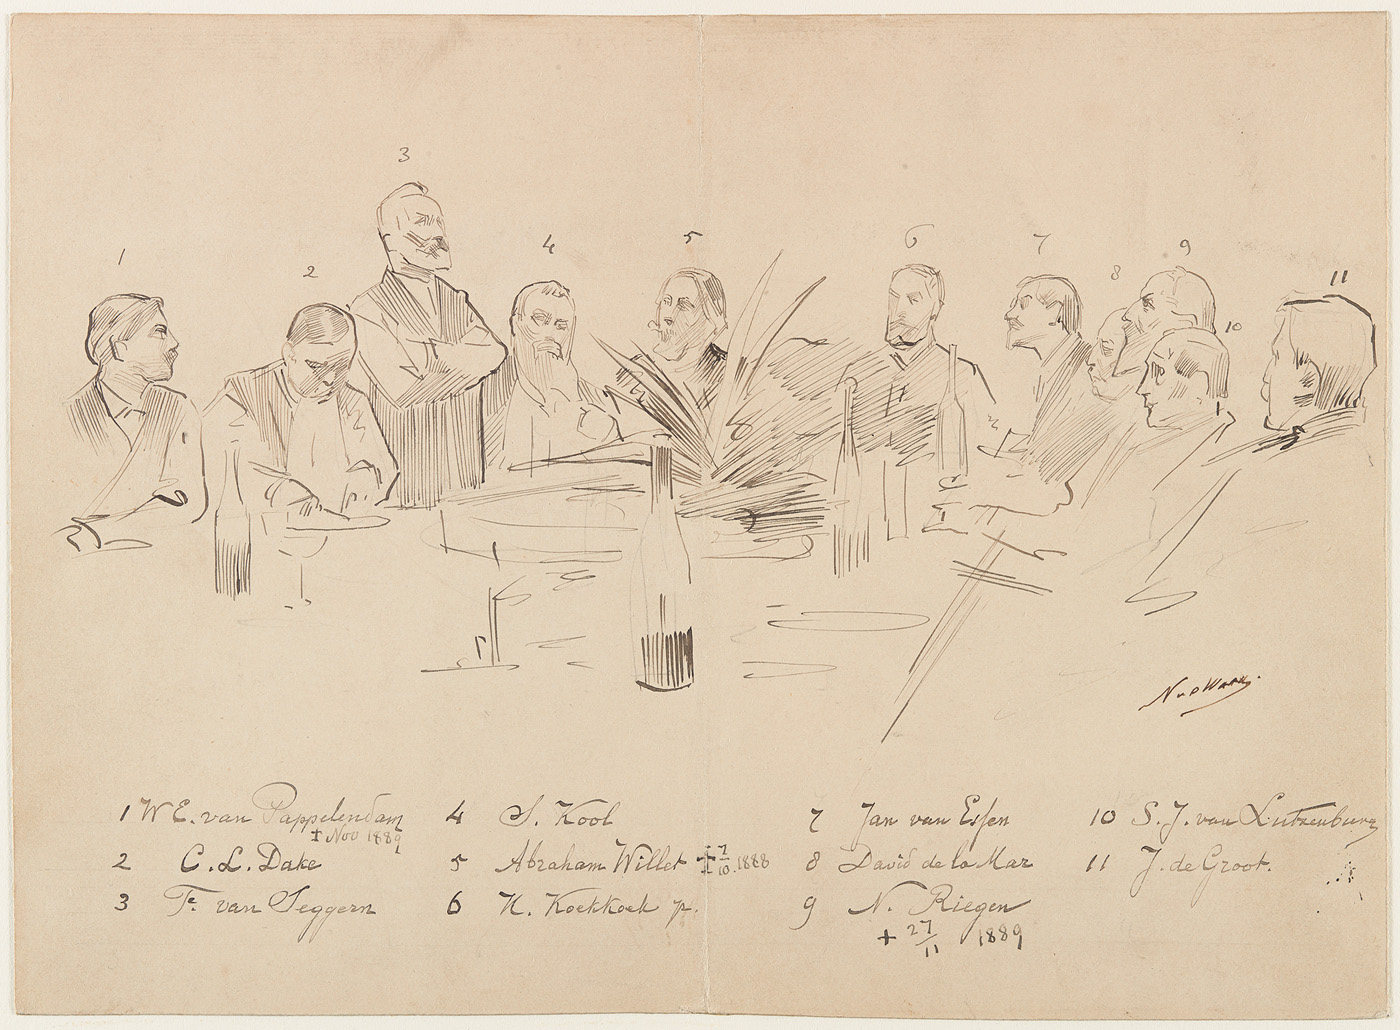 3
1
2
4
5
6
7
8
9
10
11
N v d Waay
1 W E. van Pappelendam
† Nov 1889
2 C. L. Dake
3 Fe van Seggern
4 S. Kool
5 Abraham Willet † 7/10.1888
6 H. Koekkoek p.
7 Jan van Essen
8 David de la Mar
9 N. Riegen
† 27/11 1889
10 S. J. van Lutzenburg
11 J. de Groot.